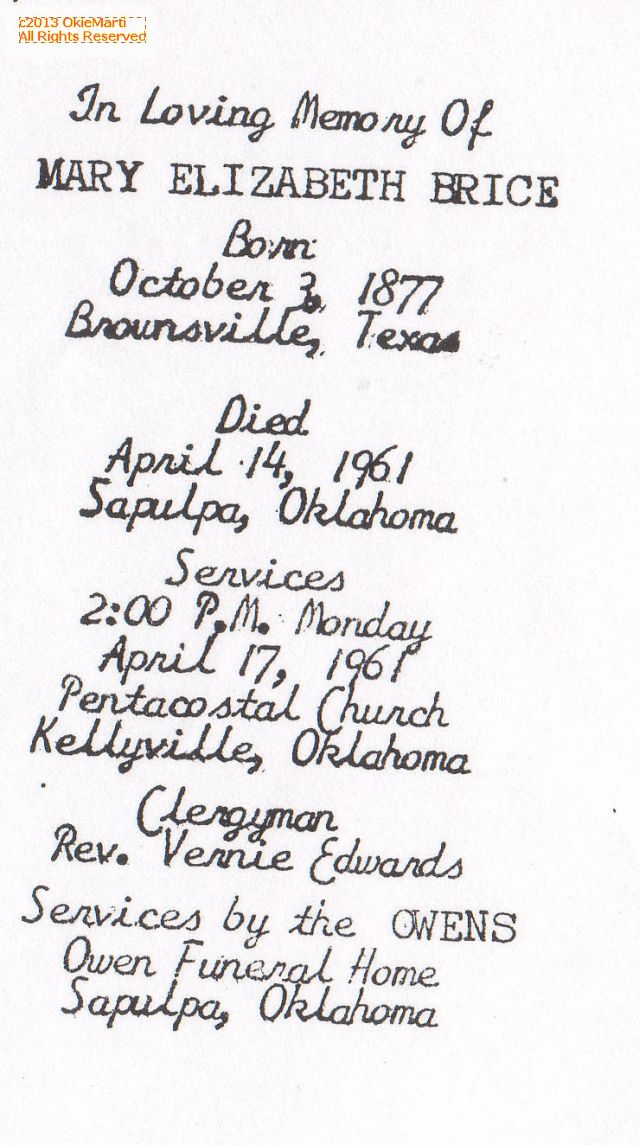 c2013 OkieMarti
All Rights Reserved
In Loving Memory Of
MARY ELIZABETH BRICE
Born
October 3, 1877
Brownsville, Texas
Died
April 14, 1961
Sapulpa, Oklahoma
Services
2:00 P.M. Monday
April 17, 1961
Pentacostal Church
Kellyville, Oklahoma
Clergyman
Rev. Vernie Edwards
Services by the OWENS
Owen Funeral Home
Sapulpa, Oklahoma